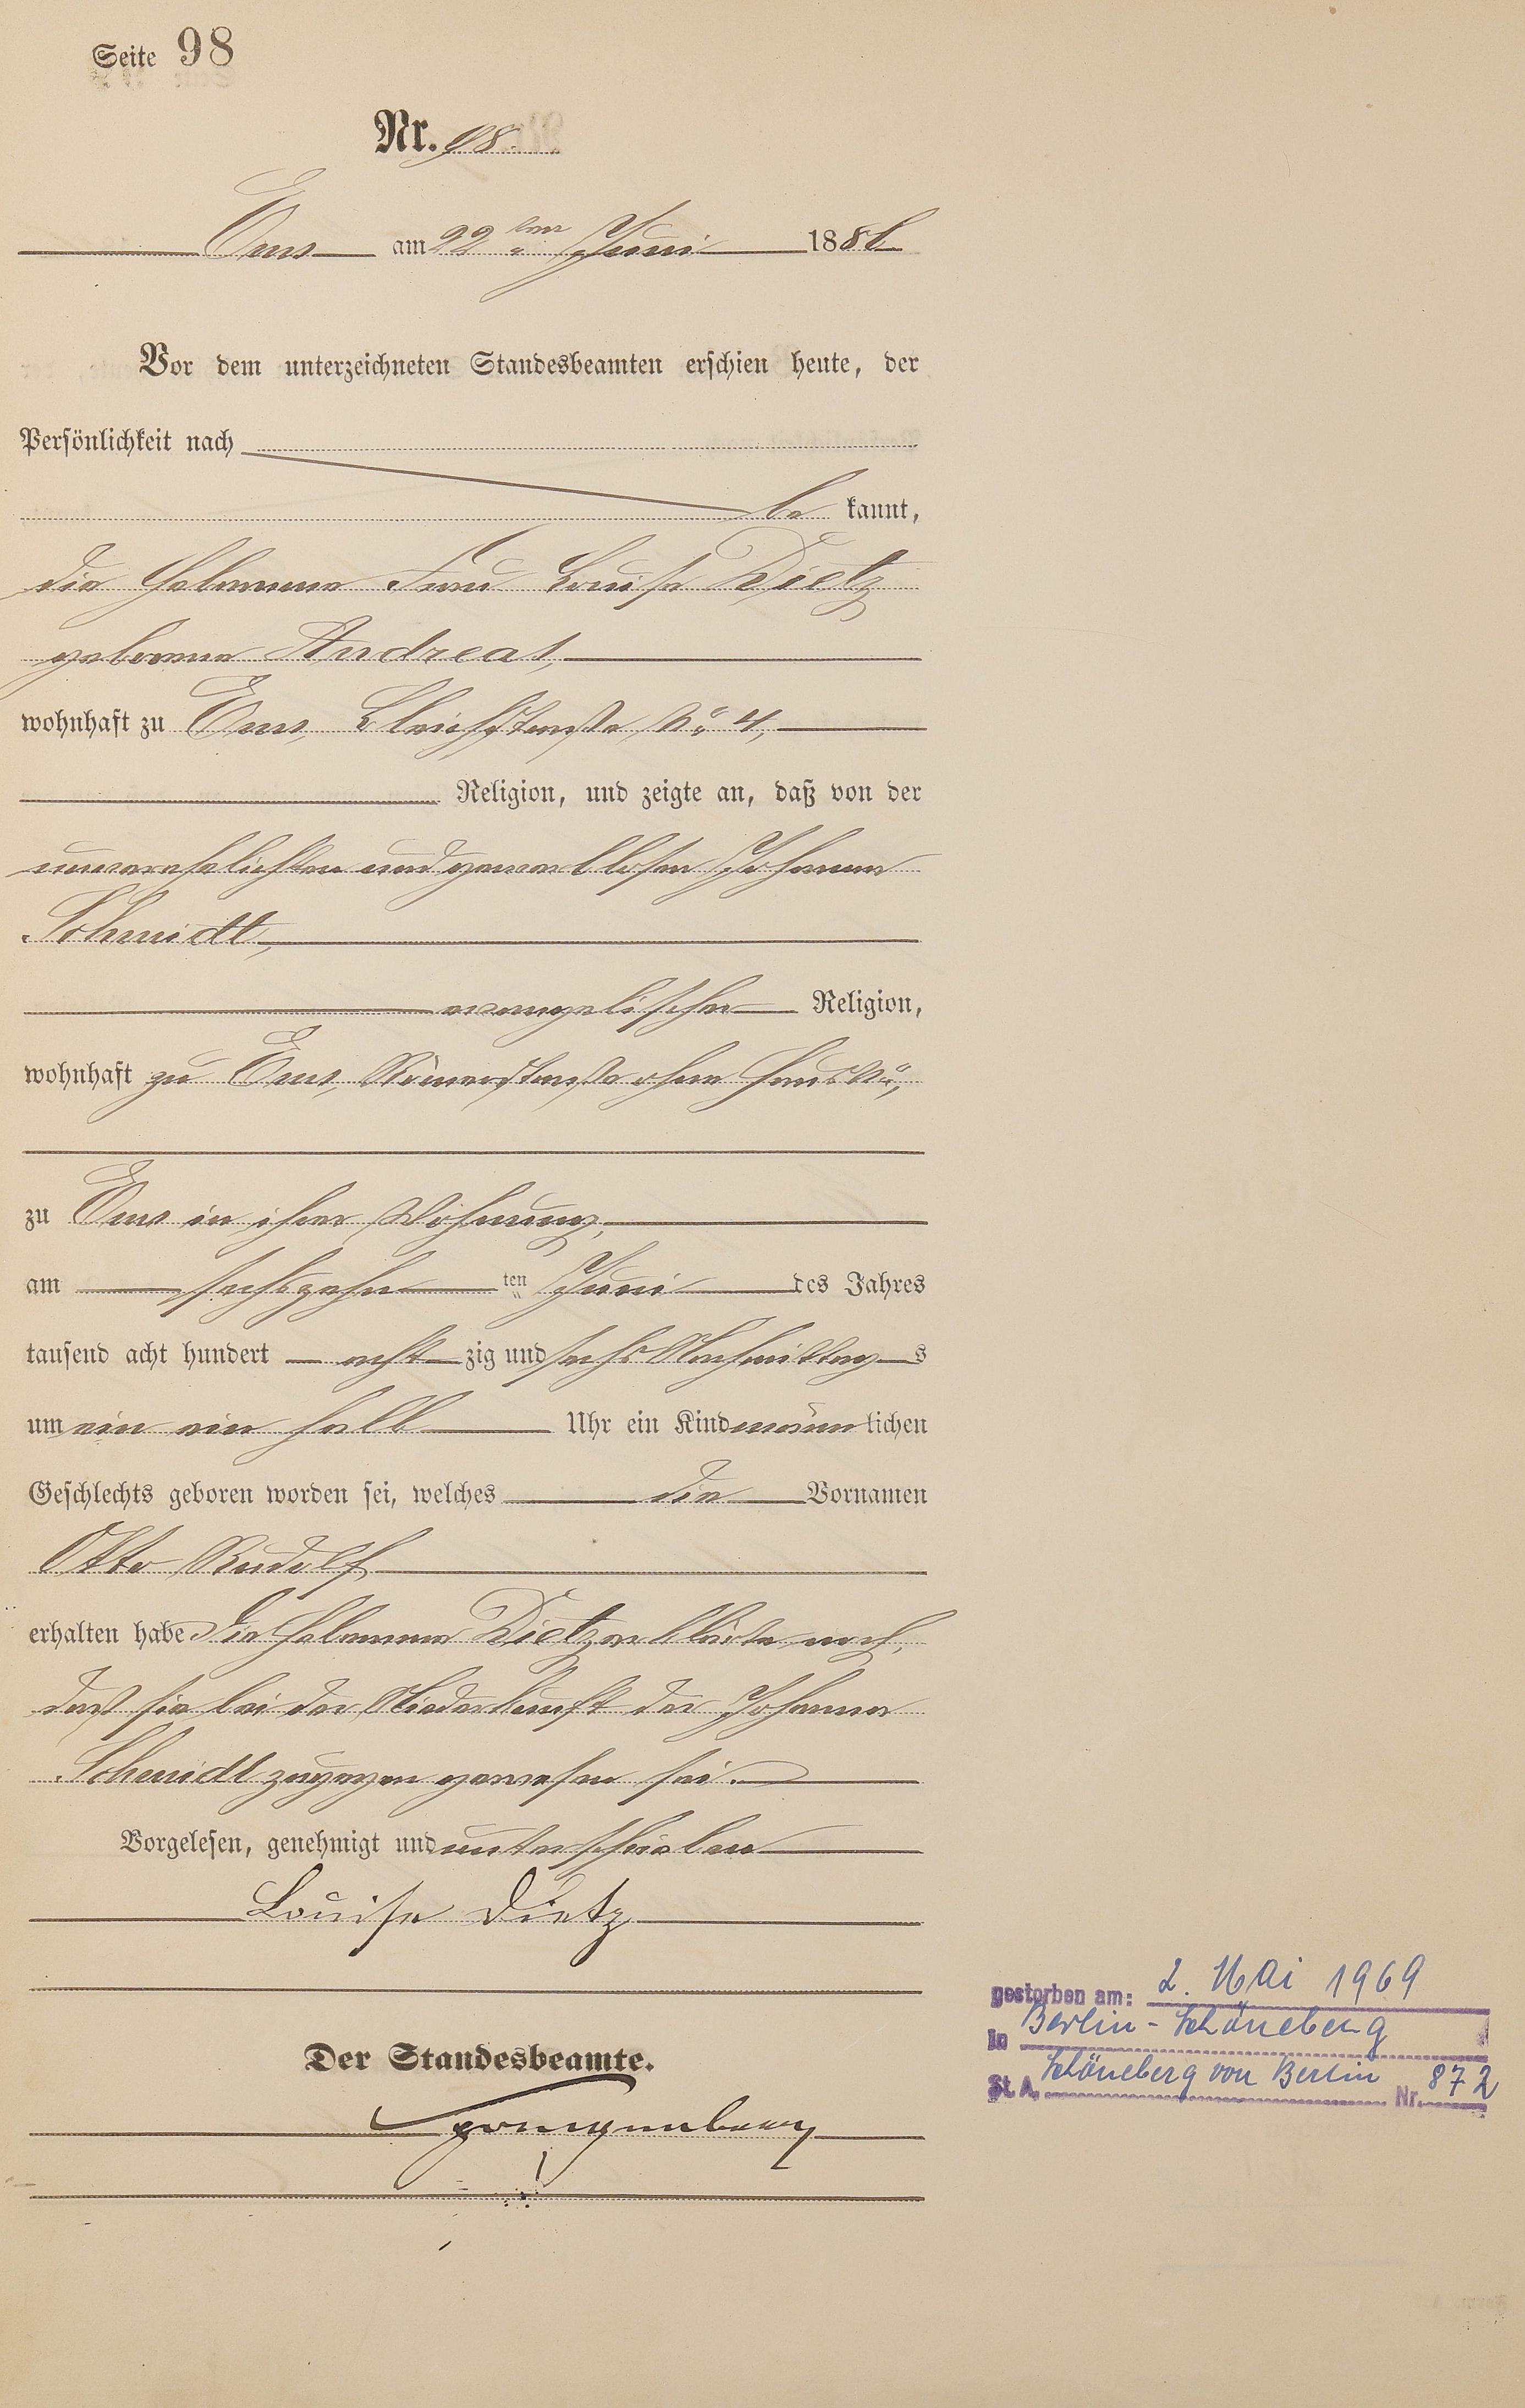 Seite 98
Nr. 98.
Ems am 22ten Juni 1886
Vor dem unterzeichneten Standesbeamten erschien heute, der
Persönlichkeit nach
be kannt,
die Hebamme Frau Louise Dietz
geborene Andreas,
wohnhaft zu Ems, Bleichstraße No 4,
Religion, und zeigte an, daß von der
unverehelichten und gewerblosen Johanna
Schmidt,
evangelischer Religion,
wohnhaft zu Ems, Römerstraße ohne Haus No,
zu Ems in ihrer Wohnung,
am sechszehn ten Juni des Jahres
tausend acht hundert acht zig und sechs Nachmittag s
um ein ein halb Uhr ein Kind männ lichen
Geschlechts geboren worden sei, welches die Vornamen
Otto Rudolf
erhalten habe. Die Hebamme Dietz erklärte noch,
daß sie bei der Niederkunft der Johanna
Schmidt zugegen gewesen sei.
Vorgelesen, genehmigt und unterschrieben
Louise Dietz
Der Standesbeamte.
gestorben am: 2. Mai 1969
in Berlin-Schöneberg
St. A. Schöneberg von Berlin Nr. 872